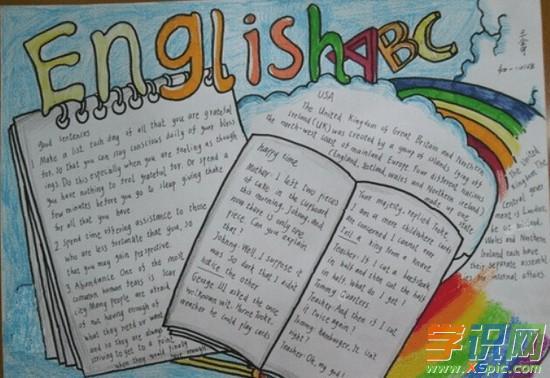 English ABC
good sentences
Make a list each day of all that you are grateful
for, so that you can stay conscious daily of your bless
ings. Do this especially when you are feeling as though
you have nothing to feel grateful for. Or spend a
few minutes before you go to sleep giving thanks
for all that you have
2. Spend time offering assistance to those
who are less fortunate than you, so
that you may gain perspective.
3. Abundance One of the most
common human fears is scar
city Many people are afraid
of not having enough of
what they need or want
and so they are always
striving to get to a point
when they would finally
enough
USA
The United Kingdom of Great Britain and Northern
Ireland (UK) was created by a group of islands lying off
the north-west coast of mainland Europe Four different nations
(England, Iceland, wales and Northern ireland)
made up one
state
The United
Kingdom The
Central
ment is London,
Wales and Northern
Ireland each have
their separate assembly
for internal affairs.
Happy time
Mother: I left two pieces
of cake in the cupboard
this morning, Johnny, and
now there is only one
piece. Can you explain
that?
Johnny: Well, I suppose it
was so dark that I didn't
notice the other
George III asked the once
wit, Horne Tooke,
weather he could play cards
Your majesty, replied Tooke,
I am a mere child where cards
are concerned I cannot even
Tell a king from a knave.
Teacher: If I cut a beefsteak
in half and then cut the half
in half, what do I get?
Tommy: Quarters.
Teacher: And then if I cut
it twice again?
Tommy: Hamburger. It isn't
right?
Teacher: Oh, my god!
学识网
www.XSpic.com